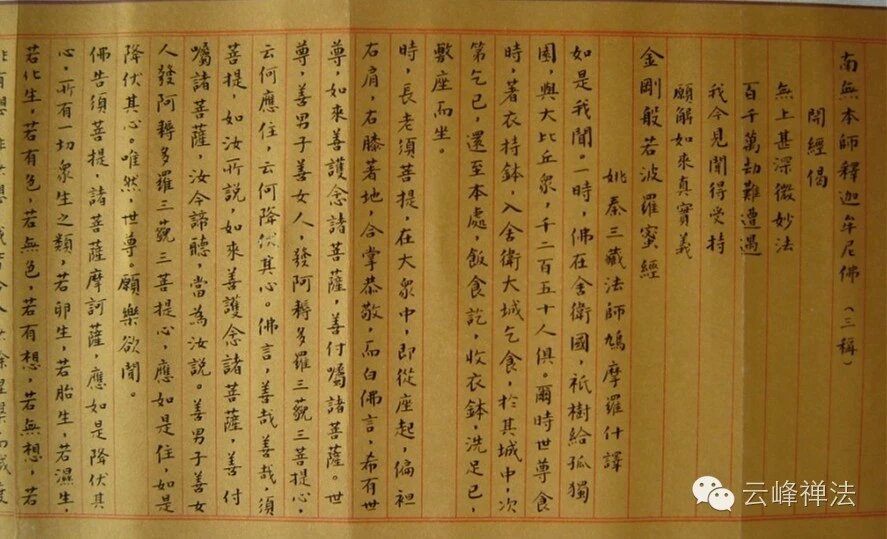 南無本師釋迦牟尼佛（三稱）
開經偈
無上甚深微妙法
百千萬劫難遭遇
我今見聞得受持
願解如來真實義
金剛般若波羅蜜經
姚秦三藏法師鳩摩羅什譯
如是我聞。一時，佛在舍衛國，祇樹給孤獨
園，與大比丘衆，千二百五十人俱。爾時世尊食
時，著衣持鉢，入舍衛大城乞食，於其城中，次
第乞已，還至本處，飯食訖，收衣鉢，洗足已，
敷座而坐。
時，長老須菩提，在大衆中，即從座起，偏袒
右肩，右膝著地，合掌恭敬，而白佛言，希有世
尊，如來善護念諸菩薩，善付囑諸菩薩。世
尊，善男子善女人，發阿耨多羅三藐三菩提心，
云何應住，云何降伏其心。佛言，善哉善哉，須
菩提，如汝所說，如來善護念諸菩薩，善付
囑諸菩薩，汝今諦聽，當為汝說。善男子善女
人發阿耨多羅三藐三菩提心，應如是住，如是
降伏其心。唯然，世尊。願樂欲聞。
佛告須菩提，諸菩薩摩訶薩，應如是降伏其
心，所有一切衆生之類，若卵生，若胎生，若濕生，
若化生，若有色，若無色，若有想，若無想，若
云峰禅法